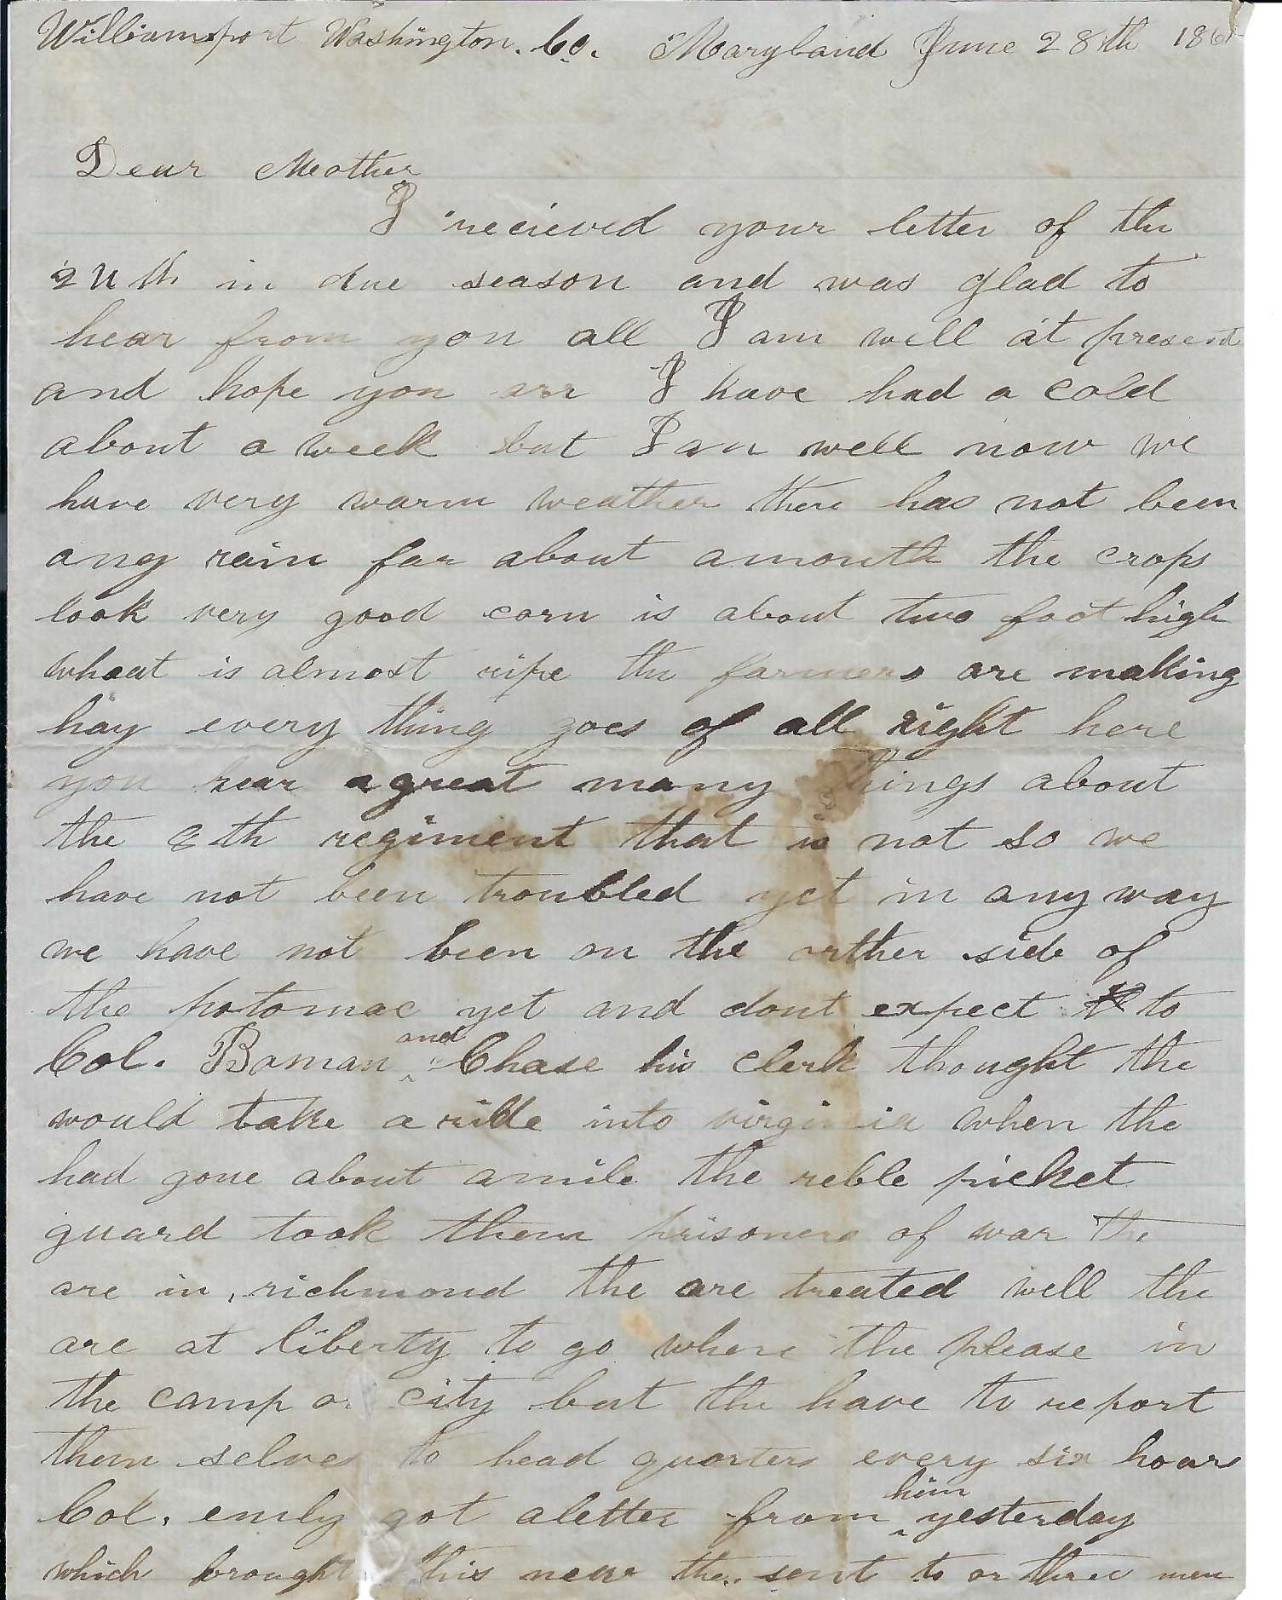 Williamsport Washington. Co. Maryland June 28th 1861
Dear Mother
I recieved your letter of the
24th in due season and was glad to
hear from you all I am well at present
and hope you arr I have had a cold
about a week but I am well now we
have very warm weather there has not been
any rain for about a month the crops
look very good corn is about two foot high
wheat is almost ripe the farmers are making
hay every thing goes of all right here
you hear a great many things about
the 8th regiment that is not so we
have not been troubled yet in any way
we have not been on the orther side of
the potomac yet and dont expect to
Col. Boman and Chase his clerk thought the
would take a ride into virginia when the
had gone about a mile the reble picket
guard took them prisoners of war the
are in richmond the are treated well the
are at liberty to go where the please in
the camp or city but the have to report
them selves to head quarters every six hours
Col. emly got a letter from him yesterday
which brought this news the sent to or three men